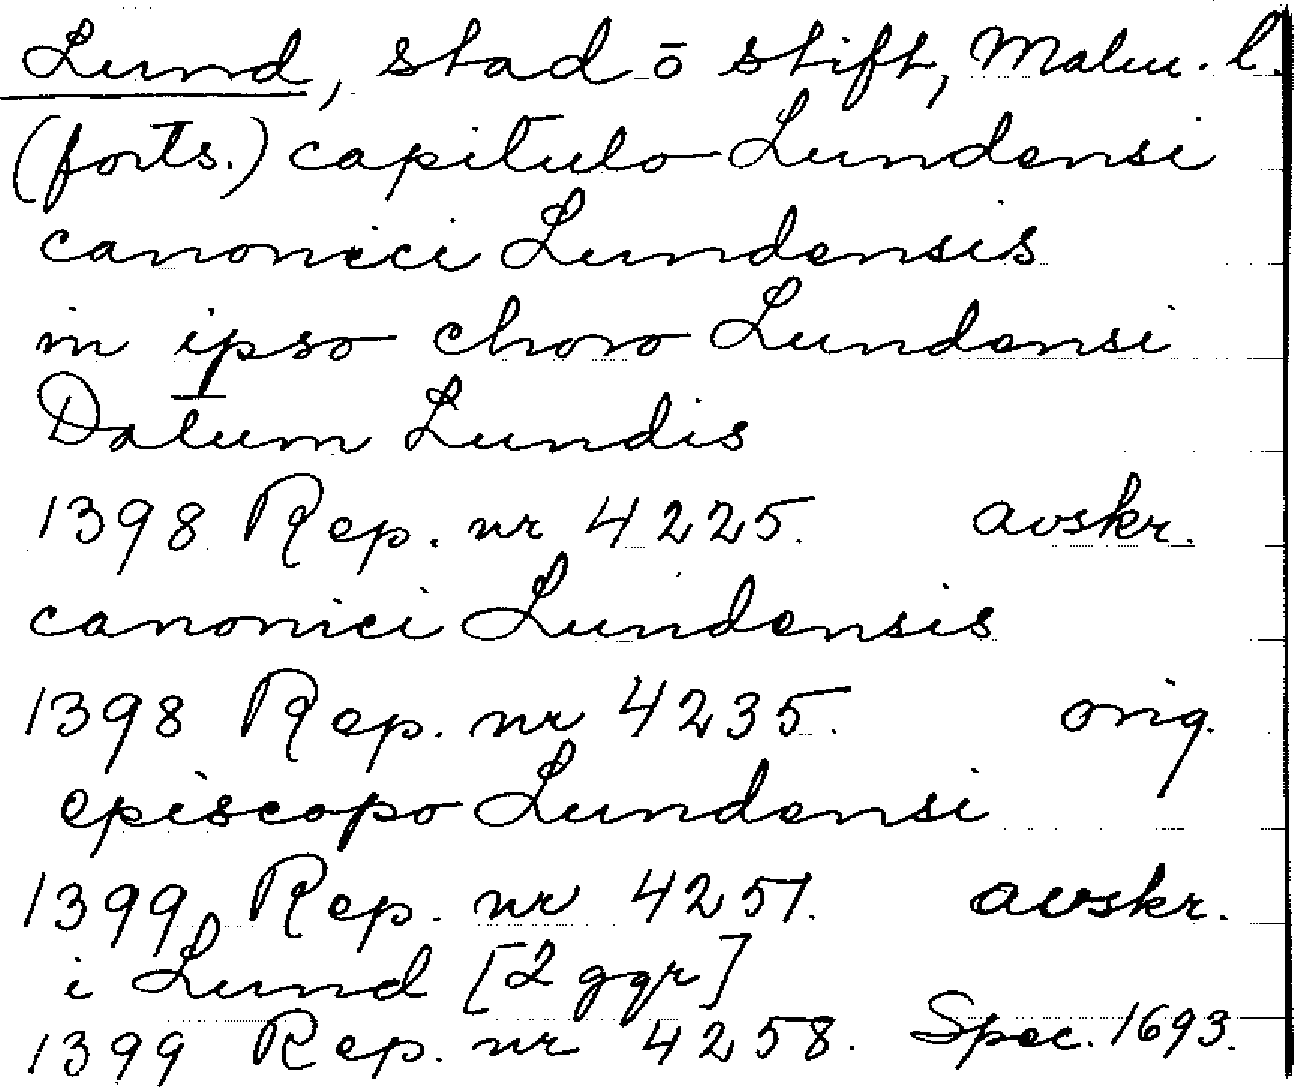 Lund, stad ō stift, Malm. l.
(forts.) capitulo Lundensi
canonici Lundensis
in ipso choro Lundensi
Datum Lundis
1398 Rep. nr 4225. avskr.
canonici Lundensis
1398 Rep. nr 4235. orig.
episcopo Lundensi
1399 Rep. nr 4251. avskr.
i Lund [2 ggr]
1399 Rep. nr 4258. Spec. 1693.